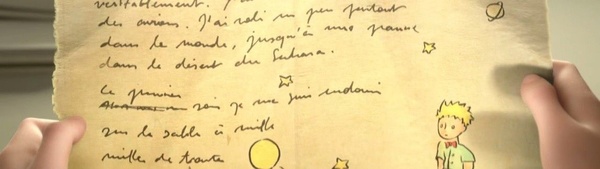 véritablement. J'
des avions. J'ai volé un peu partout
dans le monde, jusqu'à une panne
dans le désert du Sahara.
Ce premier
soir je me suis endormi
sur le sable à mille
milles de toute